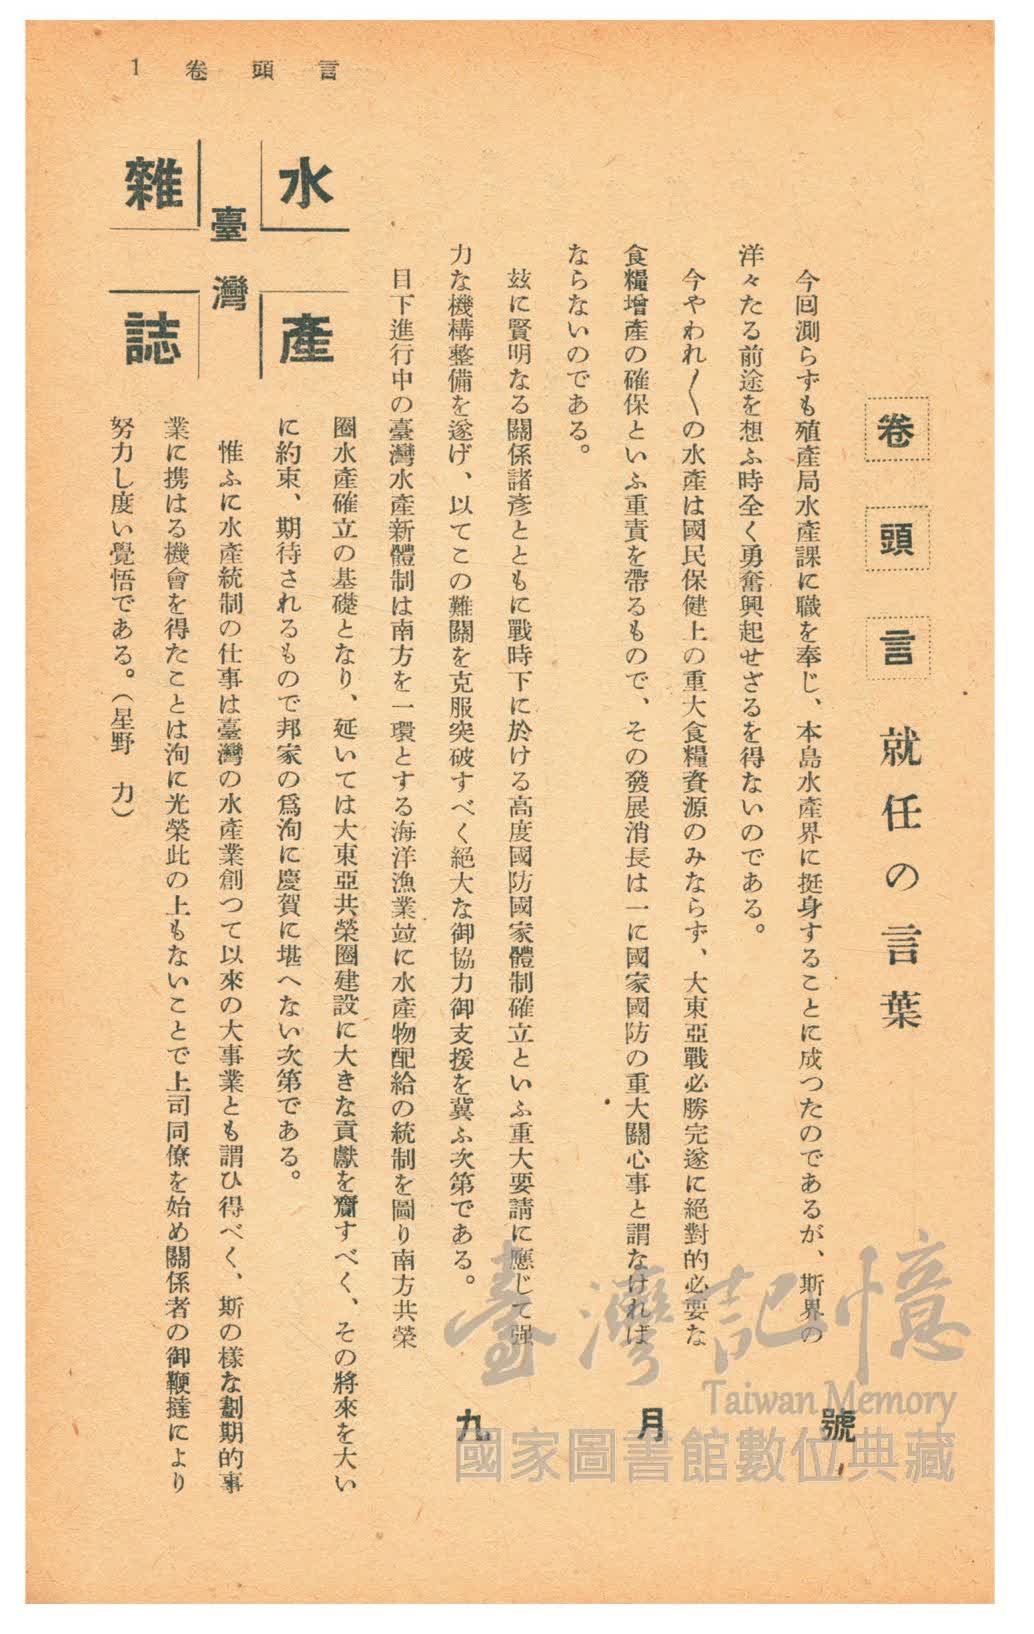 言頭卷 1
卷頭言 就任の言葉
今回測らずも殖產局水產課に職を奉じ、本島水產界に挺身することに成つたのであるが、斯界の
洋々たる前途を想ふ時全く勇奮興起せざるを得ないのである。
今やわれ〳〵の水產は國民保健上の重大食糧資源のみならず、大東亞戰必勝完遂に絕對的必要な
食糧增產の確保といふ重責を帶るもので、その發展消長は一に國家國防の重大關心事と謂なければ
ならないのである。
玆に賢明なる關係諸彥とともに戰時下に於ける高度國防國家體制確立といふ重大要請に應じて强
力な機構整備を遂げ、以てこの難關を克服突破すべく絕大な御協力御支援を冀ふ次第である。
目下進行中の臺灣水產新體制は南方を一環とする海洋漁業竝に水產物配給の統制を圖り南方共榮
圈水產確立の基礎となり、延いては大東亞共榮圈建設に大きな貢獻を齎すべく、その將來を大い
に約束、期待されるもので邦家の爲洵に慶賀に堪へない次第である。
惟ふに水產統制の仕事は臺灣の水產業創つて以來の大事業とも謂ひ得べく、斯の樣な劃期的事
業に携はる機會を得たことは洵に光榮此の上もないことで上司同僚を始め關係者の御鞭撻により
努力し度い覺悟である。（星野 力）
水產
臺灣
雜誌
九月號
臺灣記憶
Taiwan Memory
國家圖書館數位典藏